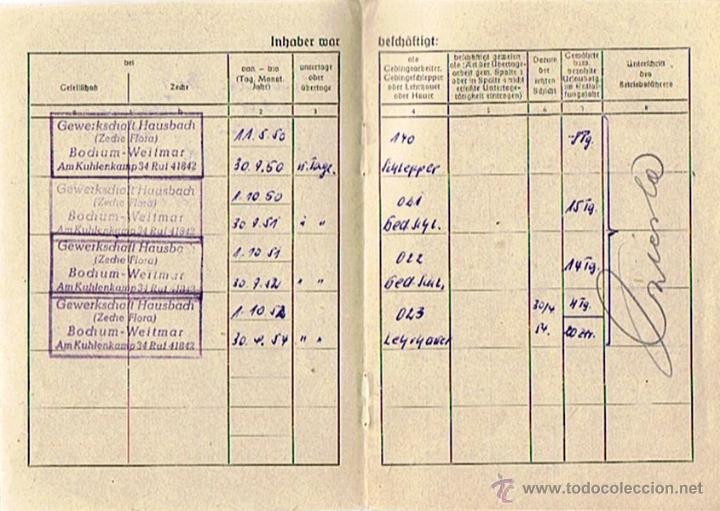 Inhaber war beschäftigt:
bei
Gesellschaft Zeche
von – bis
(Tag, Monat,
Jahr)
untertage
oder
übertage
als
Gedingearbeiter,
Gedingeschlepper
oder Lehrhauer
oder Hauer
Datum
der
letzten
Schicht
Unterschrift
des
Betriebsführers
a b 2 3 4 5 6 7 8
Gewerkschaft Hausbach
(Zeche Flora)
Bochum-Weitmar
Am Kuhlenkamp 34 Ruf 41842
11.5.50
30.9.50 u. Tage.
140
Schlepper
8 Tg.
Gewerkschaft Hausbach
(Zeche Flora)
Bochum-Weitmar
Am Kuhlenkamp 34 Ruf 41842
1.10 50
30 9.51 " "
021
Ged Schl.
15 Tg.
Gewerkschaft Hausba
(Zeche Flora)
Bochum-Weitmar
Am Kuhlenkamp 34 Ruf 41842
1.10 51
30.9.52 " "
022
Ged. Schl.
14 Tg.
Gewerkschaft Hausbach
(Zeche Flora)
Bochum-Weitmar
Am Kuhlenkamp 34 Ruf 41842
1.10 52
30.4.54 " "
023
Lehrhauer
30/4
54.
4 Tg.
© www.todocoleccion.net